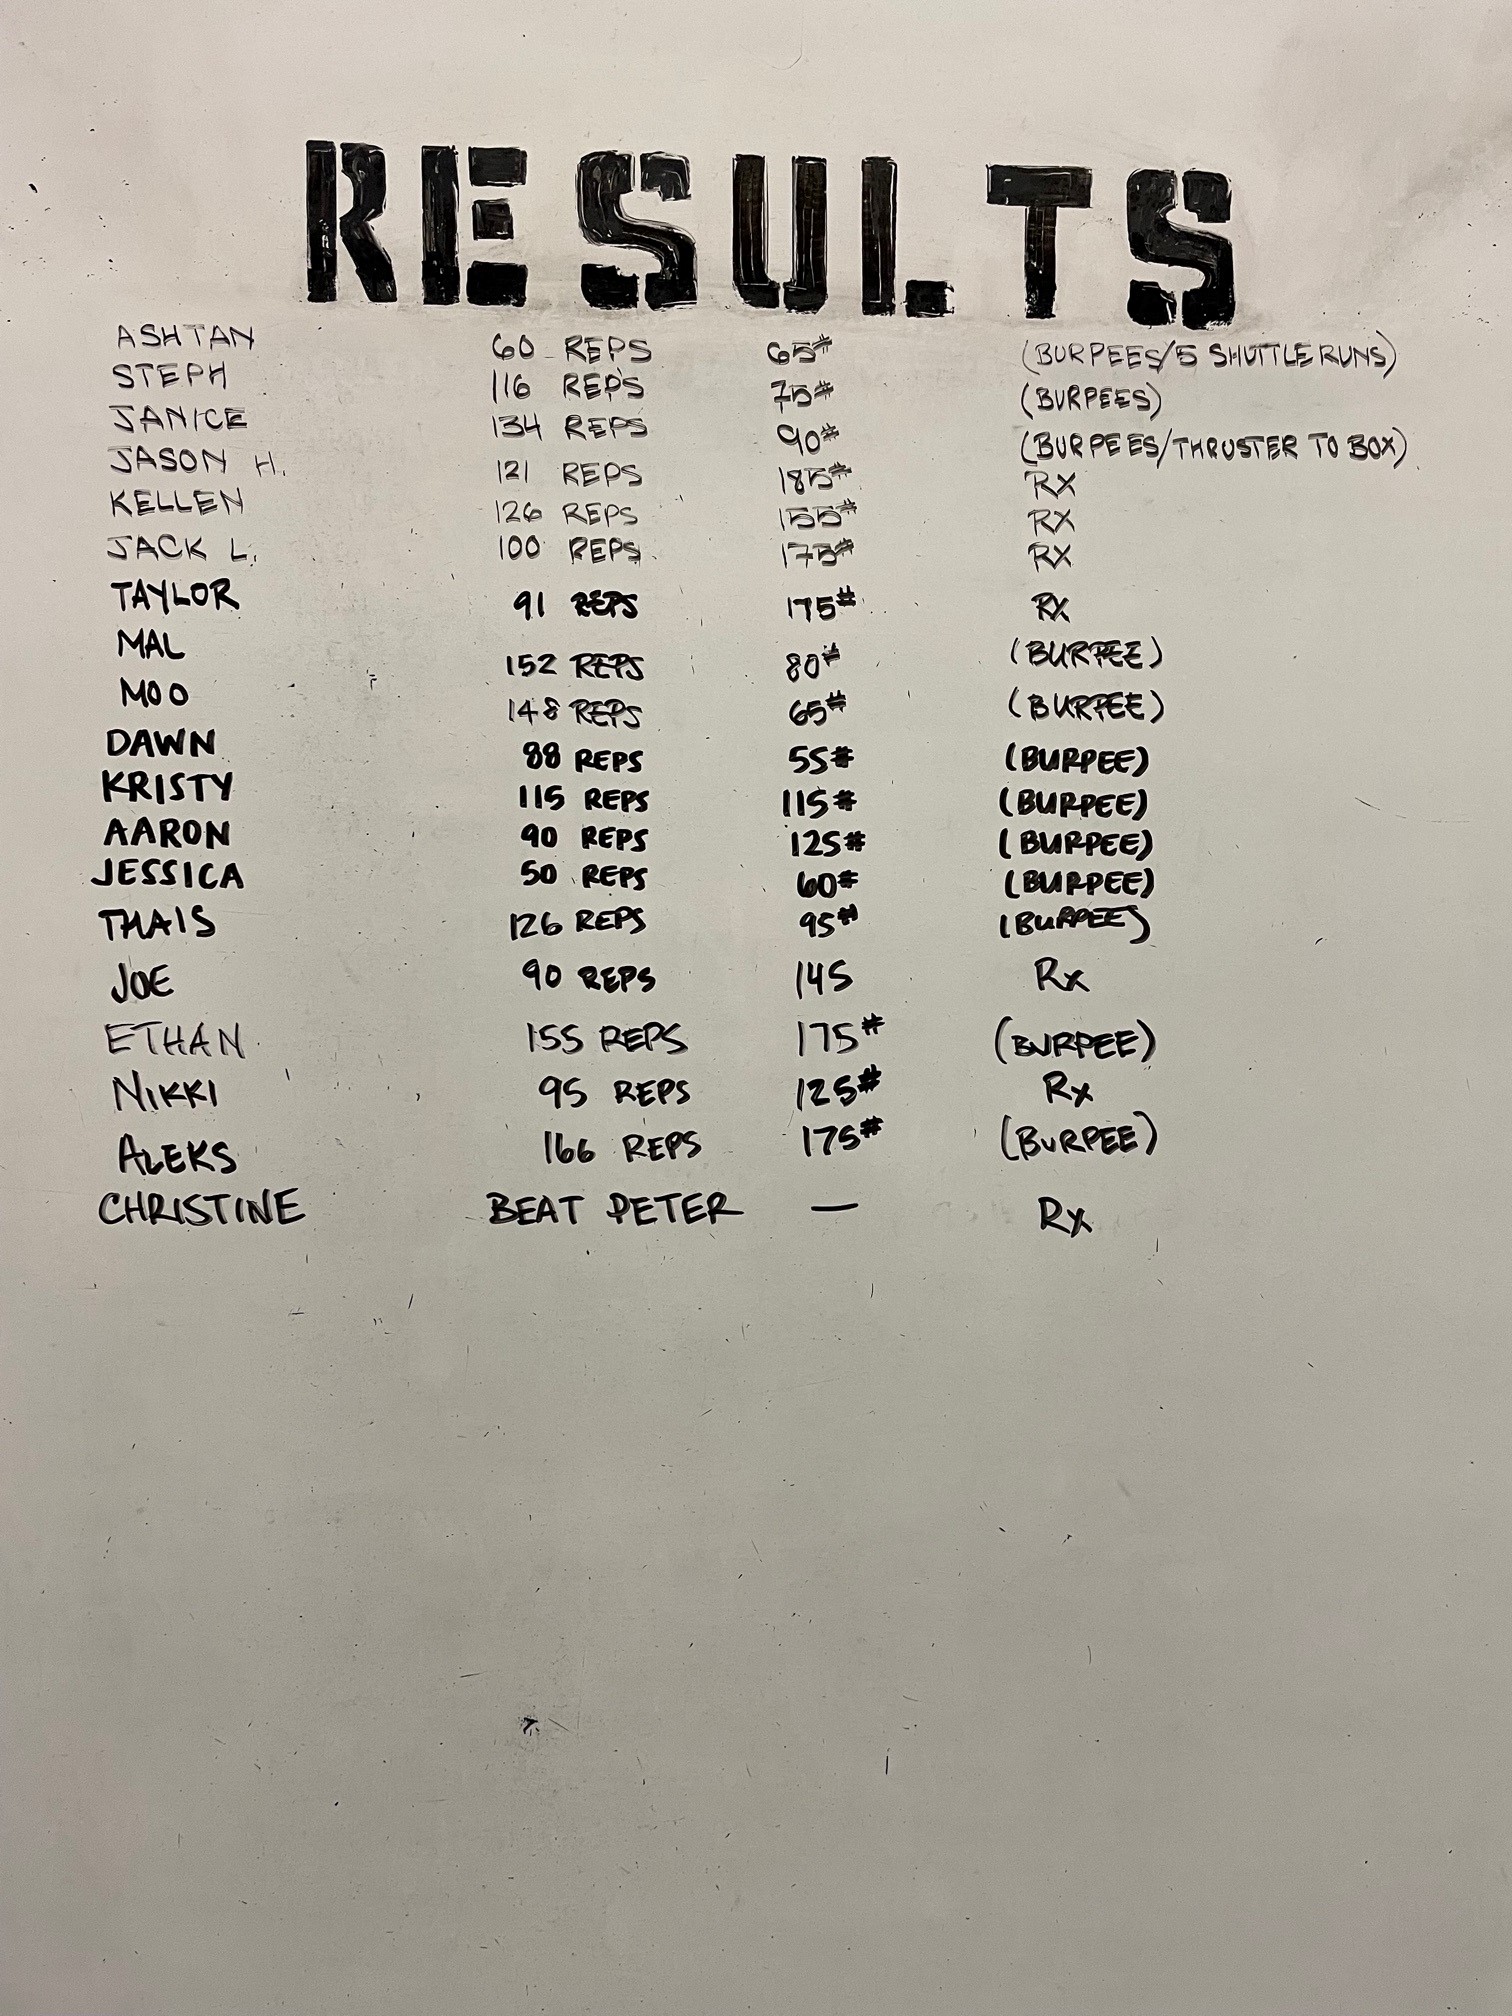 RESULTS
ASHTAN 60 REPS 65# (BURPEES/5 SHUTTLE RUNS)
STEPH 116 REPS 75# (BURPEES)
JANICE 134 REPS 90# (BURPEES/THRUSTER TO BOX)
JASON H. 121 REPS 185# RX
KELLEN 126 REPS 155# RX
JACK L. 100 REPS 175# RX
TAYLOR 91 REPS 175# RX
MAL 152 REPS 80# (BURPEE)
MOO 148 REPS 65# (BURPEE)
DAWN 88 REPS 55# (BURPEE)
KRISTY 115 REPS 115# (BURPEE)
AARON 90 REPS 125# (BURPEE)
JESSICA 50 REPS 60# (BURPEE)
THAIS 126 REPS 95# (BURPEE)
JOE 90 REPS 145 Rx
ETHAN 155 REPS 175# (BURPEE)
NIKKI 95 REPS 125# Rx
ALEKS 166 REPS 175# (BURPEE)
CHRISTINE BEAT PETER — Rx